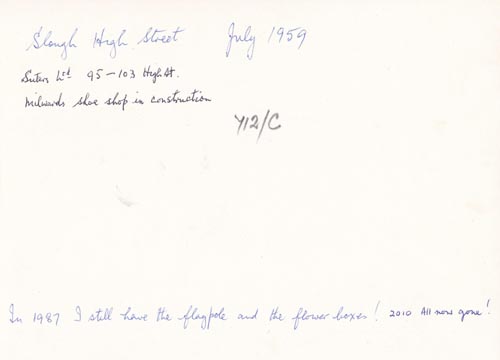 Slough High Street July 1959
Suters Ltd 95-103 High St.
Milwards shoe shop in construction
Y12/C
In 1987 I still have the flagpole and the flower boxes! 2010 All now gone!